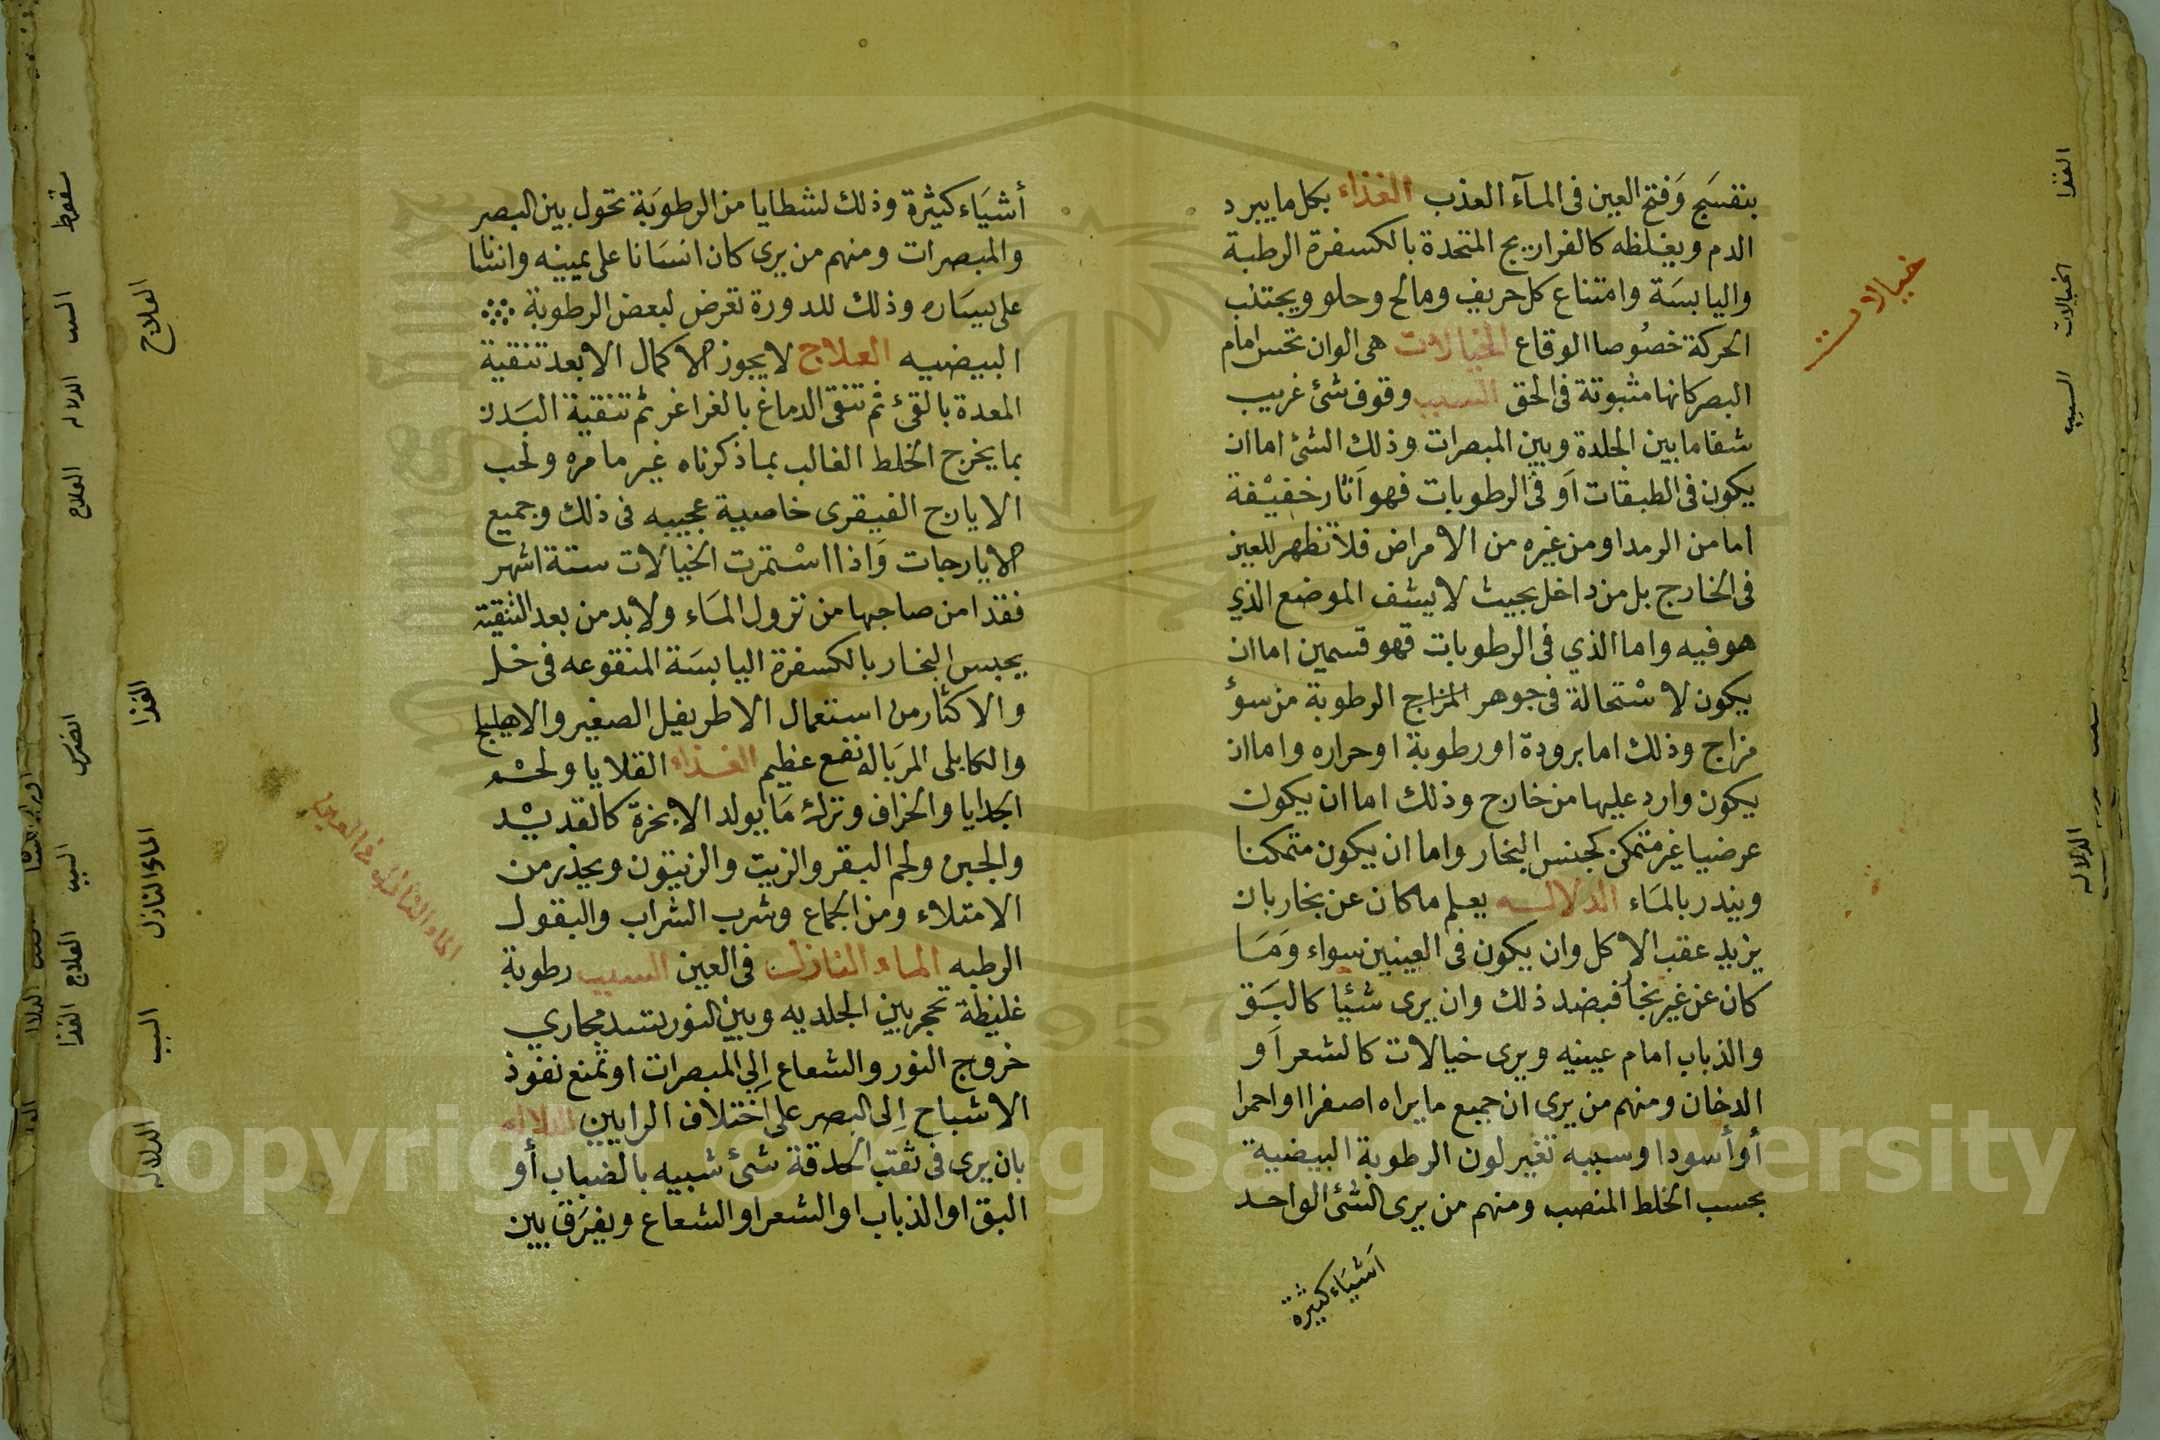 بنفسَج وَفتح العين في المآء العذب الغذاء بكل ما يبرد
الدم ويغلظه كالفراريج المتخدة بالكسفرة الرطبة
واليابسَة وامتناع كل حريف ومالح وحلو ويجتنب
الحركة خصُوصا الوقاع الخيالات هي الوان تحس امام
البصر كانها مثبوتة في الحق السبب وقوف شئ غريب
شفا ما بين الجلدة وبين المبصرات وذلك الشئ اما ان
يكون في الطبقات اَو في الرطوبات فهو اَثار خفيْفة
اما من الرمد او من غيره من الامراض فلا تظهر للعين
في الخارج بل من داخل بحيث لا يشف الموضع الذي
هو فيه واما الذي في الرطوبات فهو قسمين اما ان
يكون لاسْتحالة في جوهر المزاج الرطوبة من سوؤ
مزاج وذلك اما برودة او رطوبة او حراره واما ان
يكون وارد عليها من خارج وذلك اما ان يكون
عرضيا غير متمكن كجنس البخار واما ان يكون متمكنا
وينذر بالمَاء الدلالـــه يعلم ما كان عن بخار بان
يزيد عقب الاكل وان يكون في العينين سواء وَمَا
كان عن غير بخار فبضد ذلك وان يرى شئيا كالبَق
والذباب امام عينيه ويرى خيالات كالشعر اَو
الدخان ومنهم من يرى ان جميع ما يراه اصفرا او احمرا
أو أسودا وسببه تغير لون الرطوبة البيضية
بحسب الخلط المنصب ومنهم من يرى الشئ الواحد
اَشيَاء كثيرة
خيالات
الغذا
الخيالات
السبب
الدلاله
أشيَاء كيثرة وذلك لشطايا من الرطوبَة تحول بين البصر
والمبصرات ومنهم من يرى كان انسَانا على يمينه وانسانا
على يسَاره وذلك للدورة تعرض لبعض الرطوبة
البيضيه العلاج لا يجوز الاكمال الا بعد تنقية
المعدة بالقئ ثم تنقى الدماغ بالغراغر ثم تنقية البَدن
بما يخرج الخلط الغالب بما ذكرناه غير ما مره ولحب
الايارج الفيقرى خاصية عجيبه في ذلك وجميع
الايارجات وَاذا اسْتمرت الخيالات ستة اشهر
فقد امن صاحبها من نزول المَاء ولا بد من بعد التنقية
يحبس البخار بالكسفرة اليابسَة المنقوعه في خل
والاكثار من استعمال الاطريفل الصغير والاهليلج
والكابلى المرَباله نفع عظيم الغذاء القلايا ولحْم
الجدايا والخراف وترك مَا يولد الابخرة كالقديْد
والجبن ولحم البقر والزيت والزيتون ويحذر من
الامتلاء ومن الجماع وشرب الشراب والبقول
الرطبه الماء النازل في العين السبب رطوبة
غليظة تحجر بين الجلديه وبين النور لتسد مجاري
خروج النور والشعاع اِلي المبصرات او تمنع نفوذ
الاشباح اِلى البصر على اَختلاف الرايين الدلاله
بان يرى في ثقب الحدقة شئ شبيه بالضباب أو
البق او الذباب او الشعر او الشعاع ويفرَق بين
الماء النازل في العين
العلاج
الغذا
الماء النازل
السبب
الدلاله
سقوط
السبب
الدلاله
العلاج
السبب
العلاج
الغذا
Copyright © King Saud University
1957